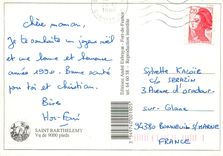 Chère maman,
Je te souhaite un joyeux noël
et une bonne et heureuse
année 1990. Bonne santé
pour toi et christian.
Bise
SAINT BARTHELEMY
Vue de 9000 pieds
Editions André Exbrayat - Fort-de-France
Reproduction interdite
Sybette
3 Avenue d'
sur-Glane
94380 Bonneuil s/ MARNE
FRANCE